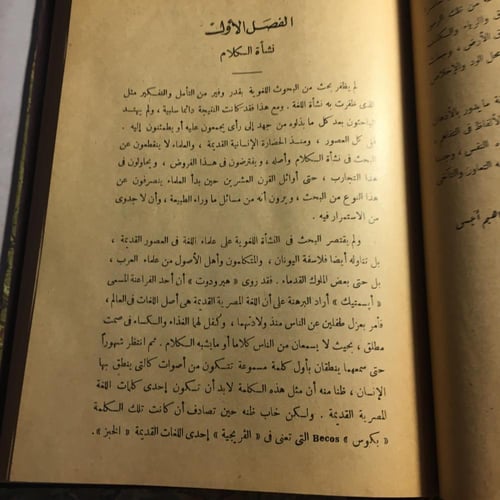 الفصل الأول
نشأة الكلام
لم يظفر بحث من البحوث اللغوية بقدر وفير من التأمل والتفكير مثل
الذى ظفرت به نشأة اللغة . ومع هذا فقد كانت النتيجة دائما سلبية ، ولم يهتد
الباحثون بعد كل ما بذلوه من جهد إلى رأى يجمعون عليه أو يطمئنون إليه .
ففى كل العصور ، ومنذ الحضارة الإنسانية القديمة ، والعلماء لا ينقطعون عن
البحث فى نشأة الكلام وأصله ، ويفترضون فى هذا الفروض ، ويحاولون فى
هذا التجارب ، حتى أوائل القرن العشرين حين بدأ العلماء ينصرفون عن
هذا النوع من البحث ، ويرون أنه من مسائل ما وراء الطبيعة ، وأن لا جدوى
من الاستمرار فيه .
ولم يقتصر البحث فى النشأة اللغوية على علماء اللغة فى العصور القديمة ،
بل تناوله أيضا فلاسفة اليونان ، والمتكلمون وأهل الأصول من علماء العرب ،
بل حتى بعض الملوك القدماء . فقد روى « هيرودوت » أن أحد الفراعنة المسمى
« أبسمتيك » أراد البرهنة على أن اللغة المصرية القديمة هى أصل اللغات فى العالم ،
فأمر بعزل طفلين عن الناس منذ ولادتهما ، وكفل لهما الغذاء والكساء فى صمت
مطلق ، بحيث لا يسمعان من الناس كلاما أو ما يشبه الكلام . ثم انتظر شهوراً
حتى سمعهما ينطقان بأول كلمة مسموعة تتكون من أصوات كالتى ينطق بها
الإنسان ، ظنا منه أن مثل هذه الكلمة لابد أن تكون إحدى كلمات اللغة
المصرية القديمة . ولكن خاب ظنه حين تصادف أن كانت تلك الكلمة
« بكوس » Becos التى تعنى فى « الفريجية » إحدى اللغات القديمة « الخبز » .